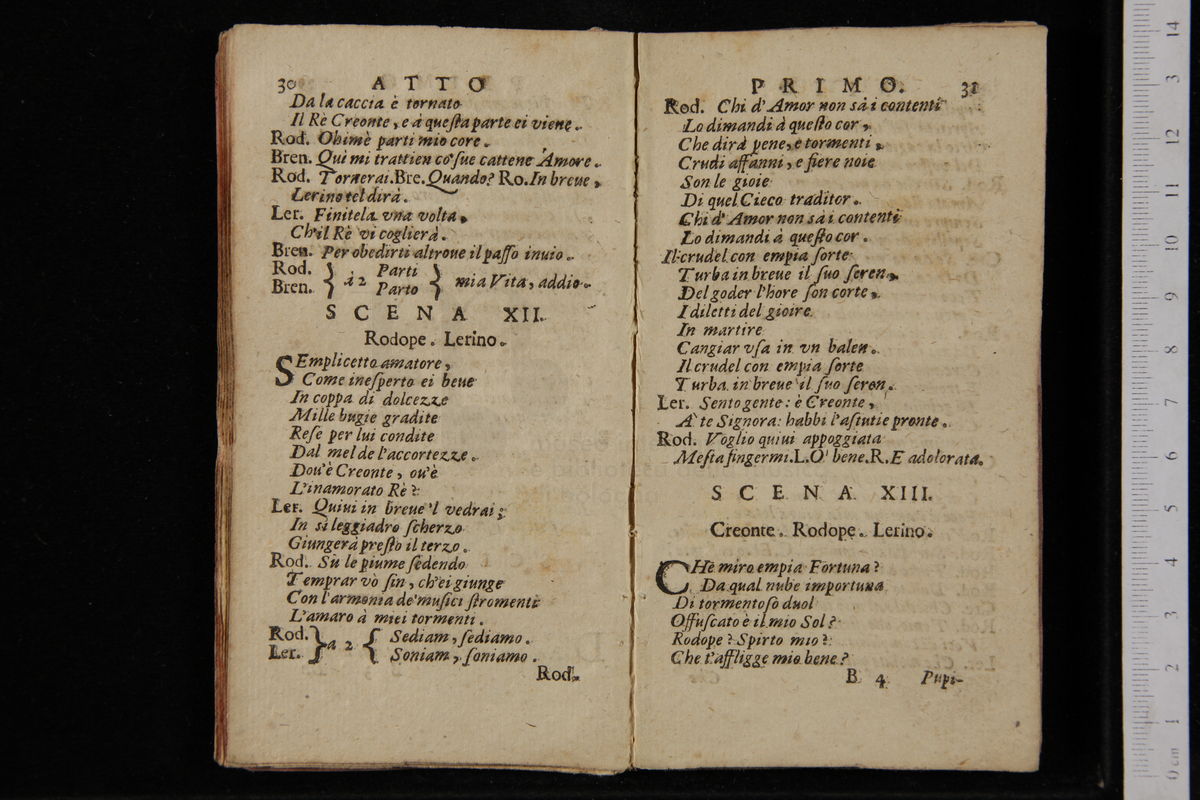 30 ATTO
Da la caccia è tornato
Il Rè Creonte, e à queſta parte ei viene.
Rod. Ohimè parti mio core.
Bren. Qui mi trattien co' ſue cattene Amore.
Rod. Tornerai. Bre. Quando? Ro. In breue,
Lerino tel dirà.
Ler. Finitela vna volta,
Ch'il Rè vi coglierà.
Bren. Per obedirti altroue il paſſo inuio.
Rod. } à 2 Parti } mia Vita, addio.
Bren. } Parto }
SCENA XII.
Rodope. Lerino.
SEmplicetto amatore,
Come ineſperto ei beue
In coppa di dolcezze
Mille bugie gradite
Reſe per lui condite
Dal mel de l'accortezze.
Dou'è Creonte, ou'è
L'inamorato Rè?
Ler. Quiui in breue 'l vedrai;
In sì leggiadro ſcherzo
Giungerà preſto il terzo.
Rod. Sù le piume ſedendo
Temprar vò ſin, ch'ei giunge
Con l'armonia de' muſici ſtromenti
L'amaro à miei tormenti.
Rod. } à 2 { Sediam, ſediamo.
Ler. } { Soniam, ſoniamo.
Rod.
PRIMO. 31
Rod. Chi d'Amor non sà i contenti
Lo dimandi à queſto cor,
Che dirà pene, e tormenti,
Crudi affanni, e fiere noie
Son le gioie
Di quel Cieco traditor.
Chi d'Amor non sà i contenti
Lo dimandi à queſto cor.
Il crudel con empia ſorte
Turba in breue il ſuo ſeren,
Del goder l'hore ſon corte,
I diletti del gioire
In martire
Cangiar vſa in vn balen.
Il crudel con empia ſorte
Turba in breue il ſuo ſeren.
Ler. Sento gente: è Creonte,
A' te Signora: habbi l'aſtutie pronte.
Rod. Voglio quiui appoggiata
Meſta fingermi. L. O' bene. R. E adolorata.
SCENA XIII.
Creonte. Rodope. Lerino.
CHè miro empia Fortuna?
Da qual nube importuna
Di tormentoſo duol
Offuſcato è il mio Sol?
Rodope? Spirto mio?
Che t'affligge mio bene?
B 4 Pupi-
0 cm 1 2 3 4 5 6 7 8 9 10 11 12 3 14